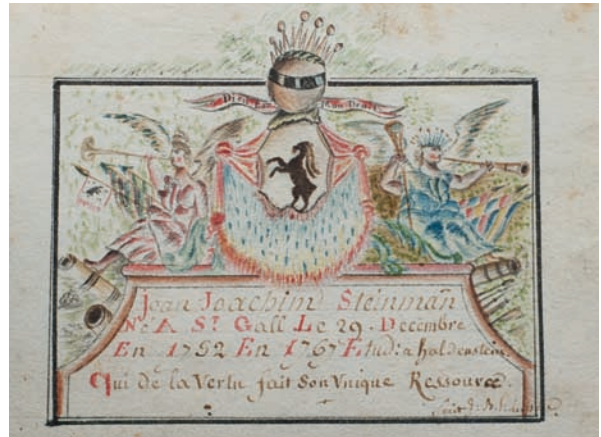 Dieu Mon Droit
Jean Joachim Steinman̄
Né A Sᵗ Gall Le 29. Decembre
En 1752 En 1767 Etud: a haldenstein.
Qui de la Vertu fait Son Vnique Ressource.